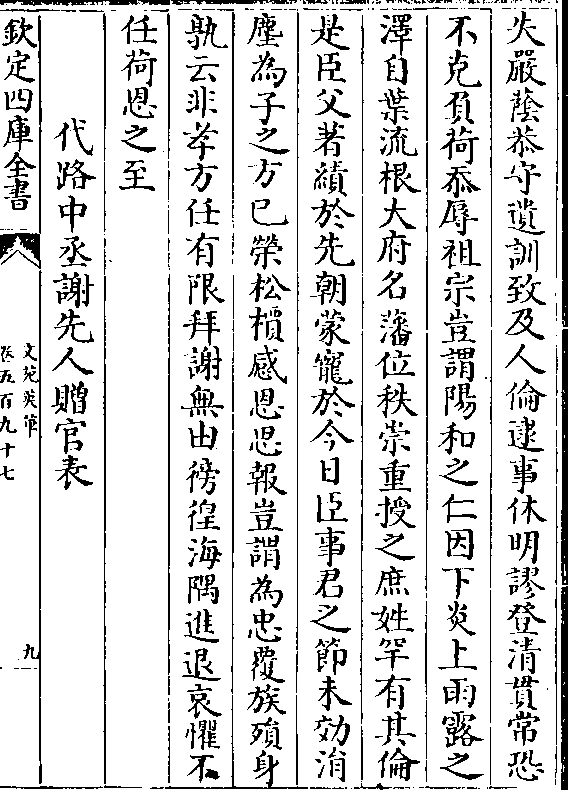 失嚴蔭恭守遺訓致及人倫逮事休明謬登清貫常恐
不克負荷忝辱祖宗豈謂陽和之仁因下炎上雨露之
澤自葉流根大府名藩位秩崇重授之庶姓罕有其倫
是臣父著績於先朝蒙寵於今日臣事君之節未効消
塵為子之方已榮松檟感恩思報豈謂為忠覆族殞身
孰云非孝方任有限拜謝無由徬徨海隅進退哀懼不
任荷恩之至
代路中丞謝先人贈官表
欽定四庫全書
文苑英華
卷五百九十七
九